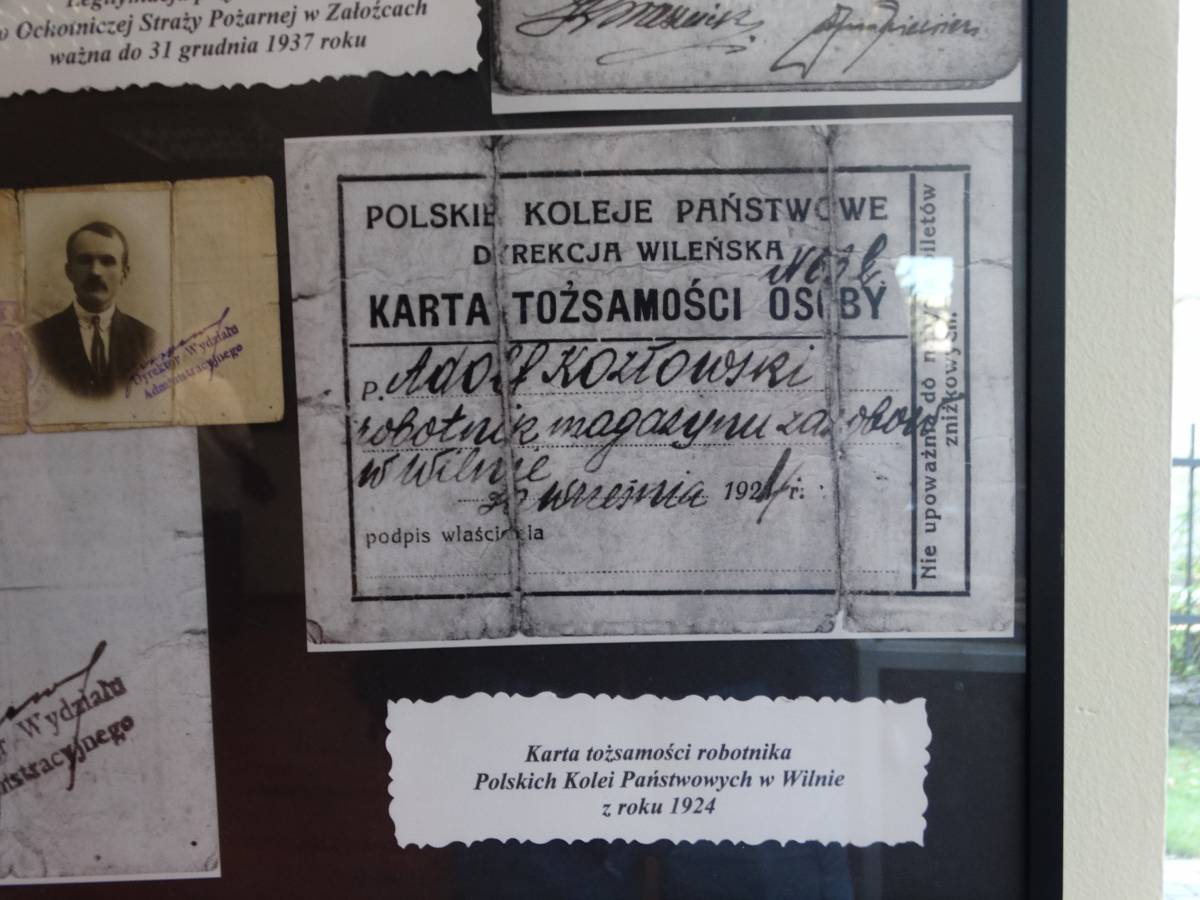 w Ochotniczej Straży Pożarnej w Założcach
ważna do 31 grudnia 1937 roku
POLSKIE KOLEJE PAŃSTWOWE
DYREKCJA WILEŃSKA
KARTA TOŻSAMOŚCI OSOBY
P. Adolf Kozłowski
robotnik magazynu zasobów
w Wilnie
września 1924 r.
podpis właściciela
Nie upoważnia do biletów
zniżkowych.
Dyrektor Wydziału
Administracyjnego
Wydziału
Karta tożsamości robotnika
Polskich Kolei Państwowych w Wilnie
z roku 1924